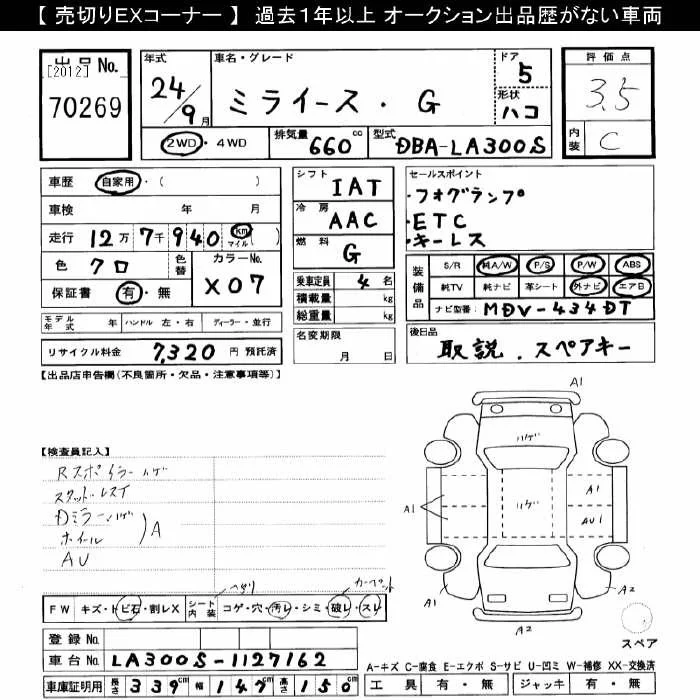 【 売切りEXコーナー 】 過去1年以上 オークション出品歴がない車両
出品No.
[2012]
70269
年式
24/9月
車名・グレード
ミライース・G
ドア
5
形状
ハコ
評価点
3.5
内装
C
2WD・4WD
排気量 660 cc
型式 DBA-LA300S
車歴 自家用・( )
車検 年 月
走行 12万7千940 km マイル( )
色 クロ
色替
カラーNo.
X07
保証書 有・無
シフト IAT
冷房 AAC
燃料 G
乗車定員 4名
積載量 kg
総重量 kg
名変期限
月 日
セールスポイント
・フォグランプ
・ETC
・キーレス
装備品
S/R 純A/W P/S P/W ABS
純TV 純ナビ 革シート 外ナビ エアB
ナビ型番 MDV-434DT
モデル年式 年 ハンドル 左・右 ディーラー・並行
リサイクル料金 7,320 円 預託済
後日品
取説.スペアキー
【出品店申告欄(不良箇所・欠品・注意事項等)】
【検査員記入】
Rスポイラーハゲ
Dミラーハゲ
ホイール
A
AU
A1
ハゲ
ハゲ
A1
A1
AU1
A1
A2
A2
スペア
ヘタリ
カーペット
FW キズ・トビ石・割レX
シート内装 コゲ・穴・汚レ・シミ・破レ・スレ
登録No.
車台No. LA300S-1127162
車庫証明用 長さ 339cm 幅 147cm 高さ 150cm
A-キズ C-腐食 E-エクボ S-サビ U-凹ミ W-補修 XX-交換済
工具 有・無 ジャッキ 有・無